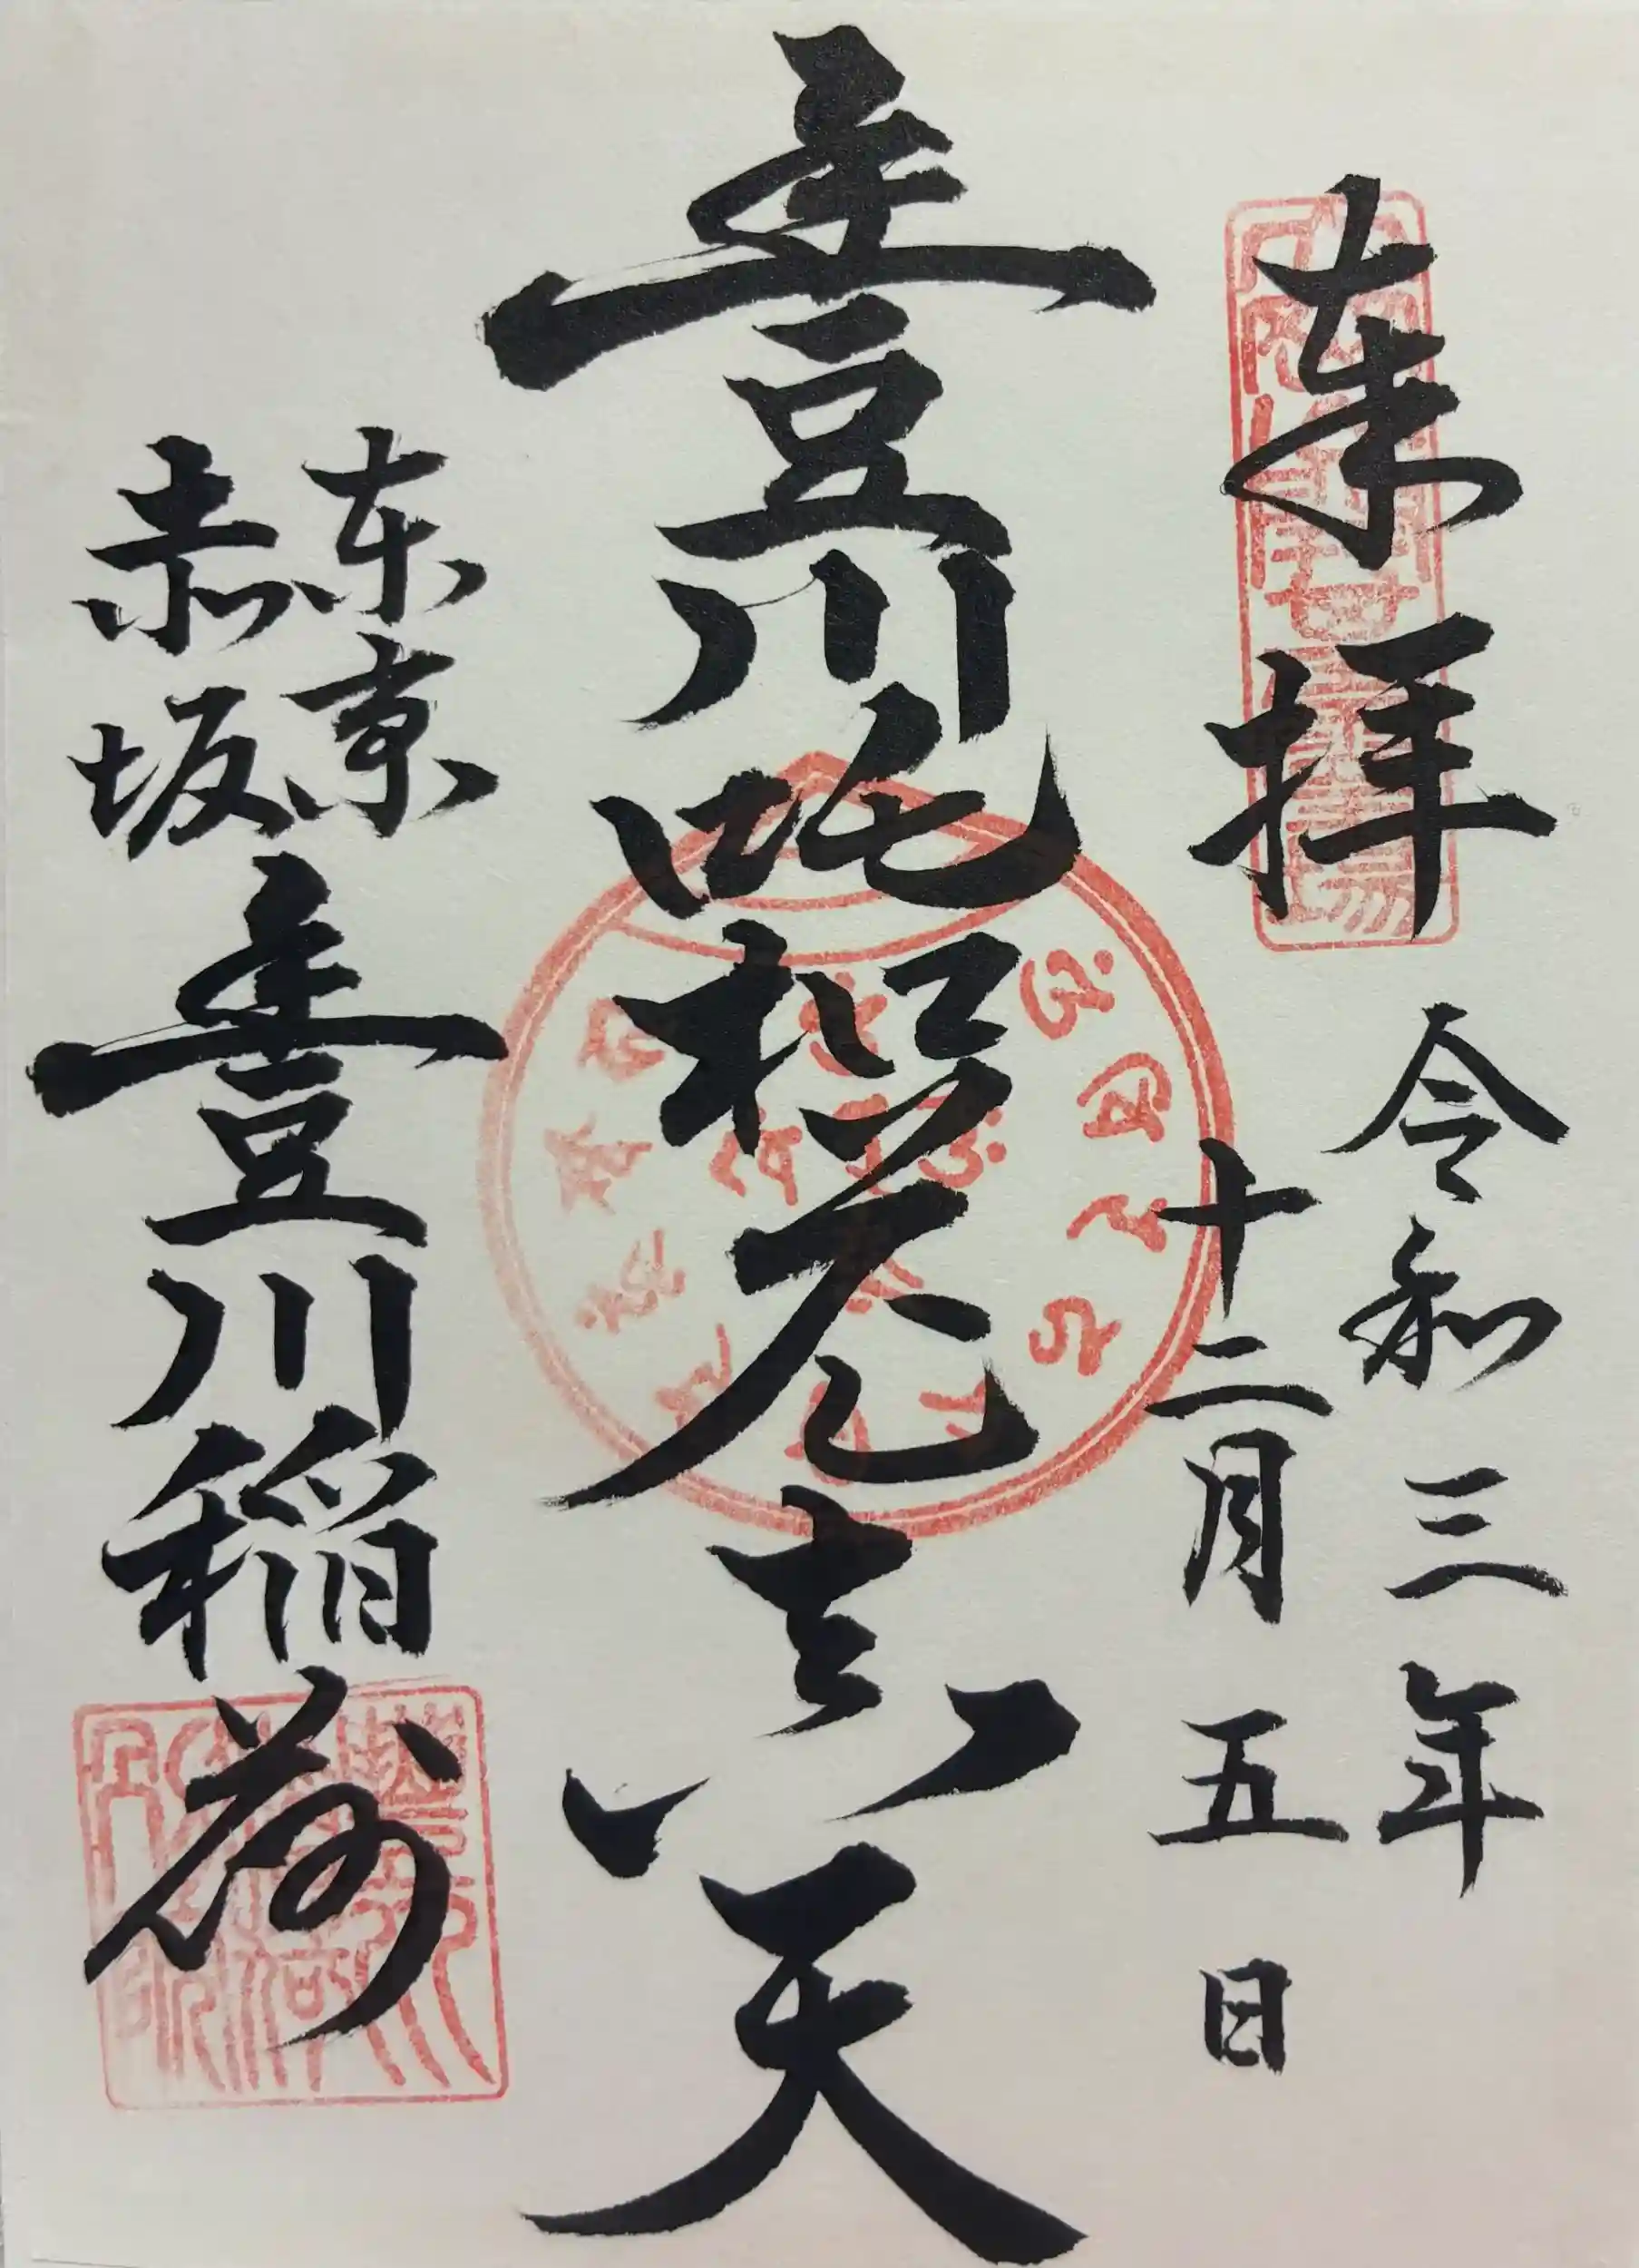 来拝
令和三年
十二月五日
豊川吒枳尼真天
東京
赤坂
豊川稲荷